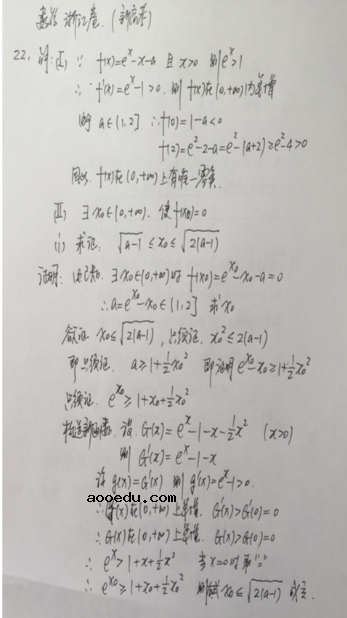 数学 浙江卷. (新高考)
22. 解: (I) ∵ f(x)=e^x-x-a 且 x>0 则 e^x>1
∴ f'(x)=e^x-1>0. 则 f(x)在(0,+∞)内单增
a∈(1,2] ∴ f(0)=1-a<0
f(2)=e^2-2-a=e^2-(a+2)≥e^2-4>0
因此 f(x)在(0,+∞)上有唯一零点
(II) ∃ x₀∈(0,+∞). 使f(x₀)=0
(i) 求证: √(a-1) ≤x₀≤ √(2(a-1))
证明: 由已知. ∃ x₀∈(0,+∞) f(x₀)=e^x₀-x₀-a=0
∴a=e^x₀-x₀∈(1,2] 求x₀
欲证 x₀≤√(2(a-1)), 只须证. x₀²≤2(a-1)
即只须证. a≥1+½x₀² 即证明 e^x₀-x₀≥1+½x₀²
只须证. e^x₀≥1+x₀+½x₀²
构造新函数. 设 G(x)=e^x-1-x-½x² (x>0)
则 G'(x)=e^x-1-x
设 g(x)=G'(x) 则 g'(x)=e^x-1>0.
aooedu.com
∴ g(x)在(0,+∞)上单增. G'(x)>G'(0)=0
∴G(x)在(0,+∞)上单增. G(x)>G(0)=0
∴ e^x>1+x+½x² 当x=0时取"="
∴ e^x₀≥1+x₀+½x₀² x₀≤√(2(a-1)) 成立.